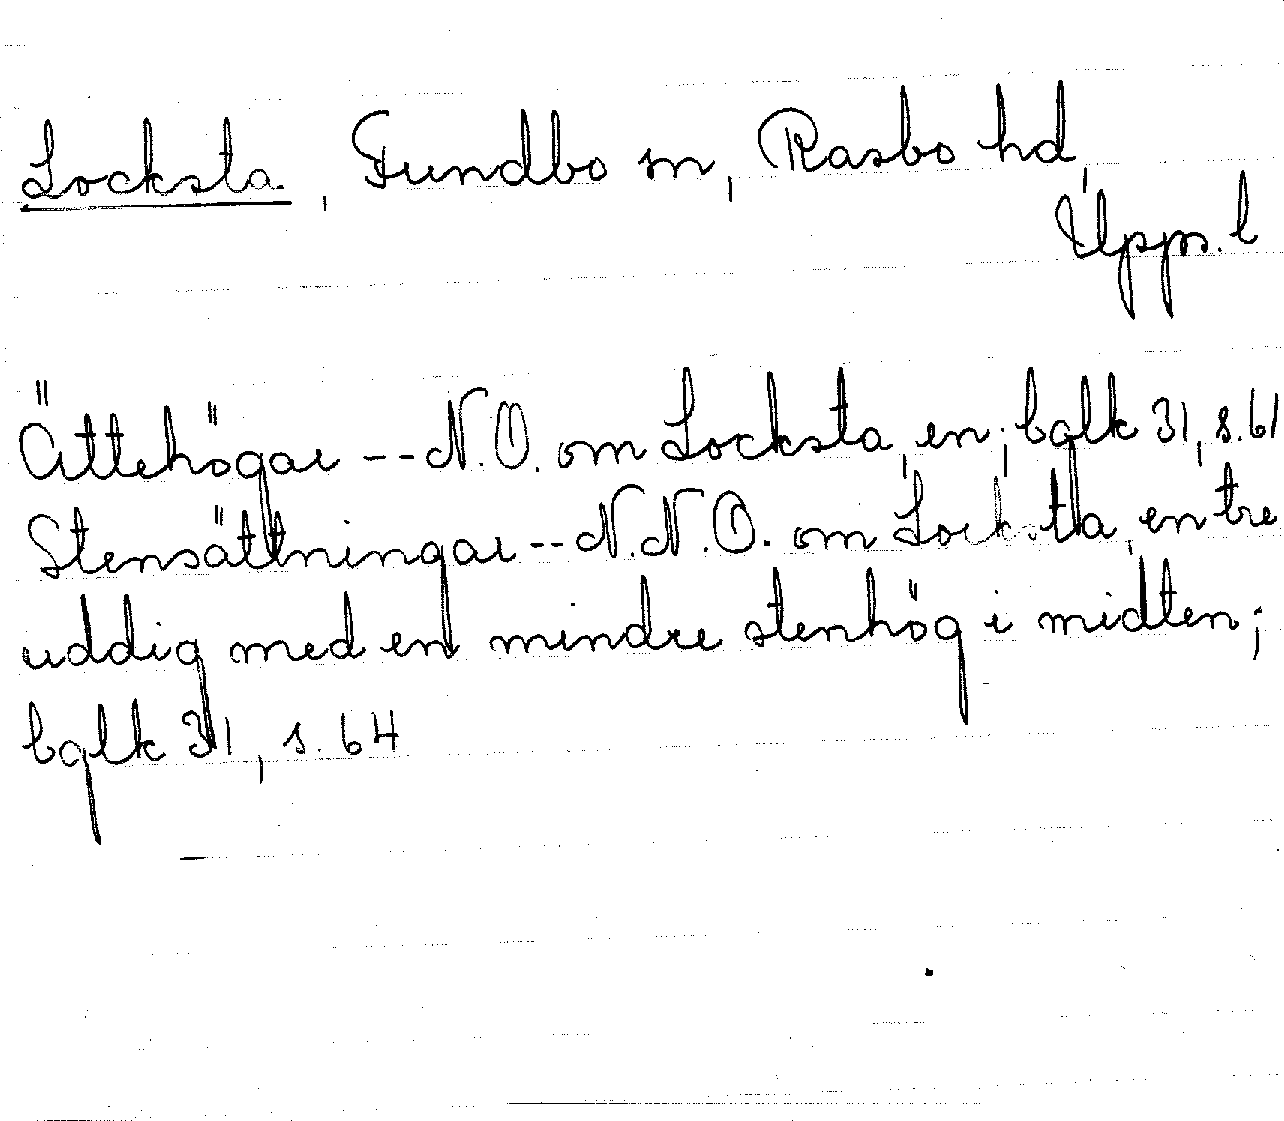 Locksta, Fundbo sn, Rasbo hd,
Upps. l
Ättehögar -- N.O. om Locksta, en; bglk 31, s. 61
Stensättningar -- N.N.O. om Locksta, en tre
uddig med en mindre stenhög i midten;
bglk 31, s. 64